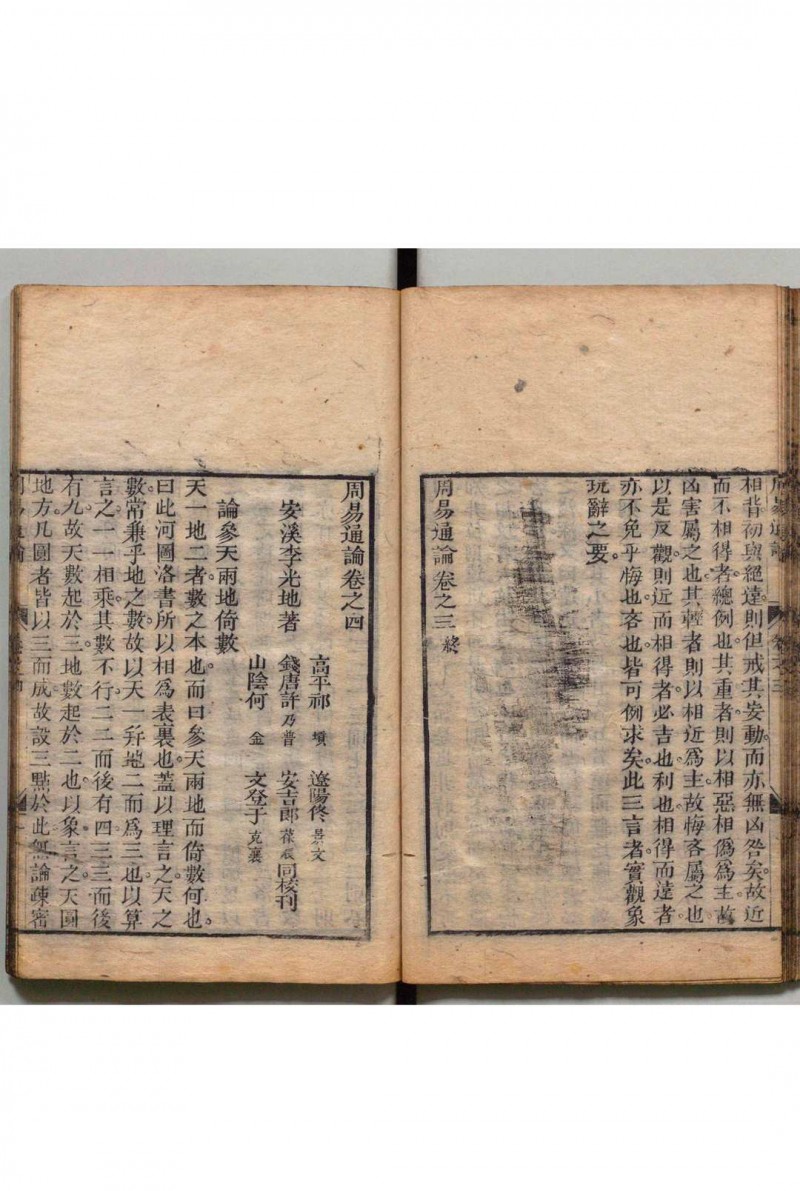 相背初與絕遠則但戒其妄動而亦無凶咎矣故近
而不相得者總例也其重者則以相惡相僞爲主故
凶害屬之也其輕者則以相近爲主故悔吝屬之也
以是反觀則近而相得者必吉也利也相得而遠者
亦不免乎悔也吝也皆可例求矣此三言者實觀象
玩辭之要
周易通論卷之三終
周易通論卷之四
安溪李光地著
高平祁 墳 遼陽佟 景文
錢唐許乃普 安吉郎葆辰同校刊
山陰何 金 文登于克襄
論參天兩地倚數
天一地二者數之本也而曰參天兩地而倚數何也
曰此河圖洛書所以相爲表裏也蓋以理言之天之
數常兼乎地之數故以天一幷地二而爲三也以算
言之一一相乘其數不行二二而後有四三三而後
有九故天數起於三地數起於二也以象言之天圓
地方凡圓者皆以三而成故設三點於此無論疎密